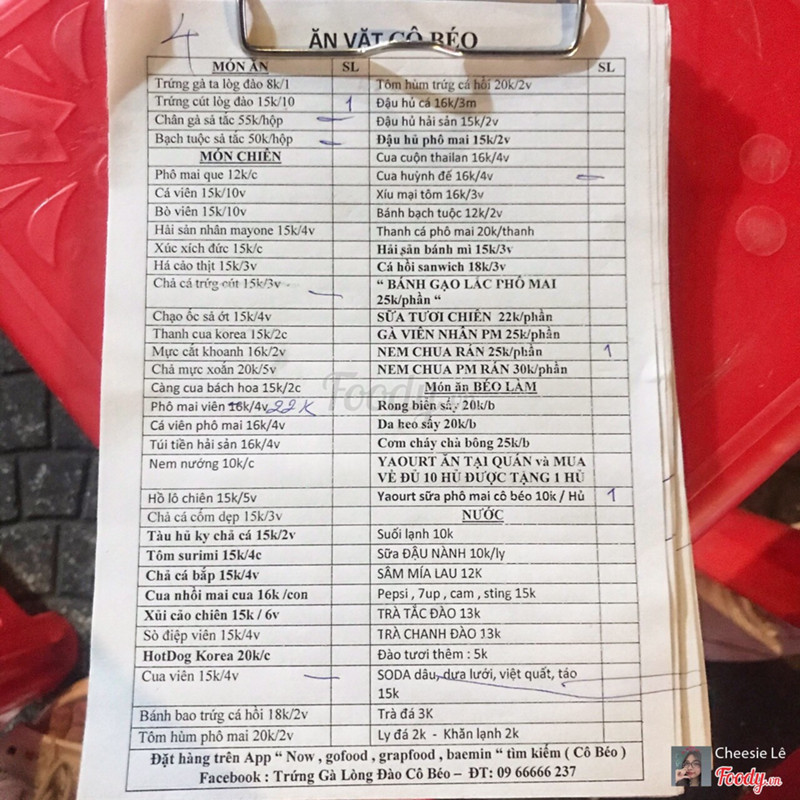 4
ĂN VẶT CÔ BÉO
MÓN ĂN SL
Trứng gà ta lòg đào 8k/1
Trứng cút lòg đào 15k/10 1
Chân gà sả tắc 55k/hộp
Bạch tuộc sả tắc 50k/hộp
MÓN CHIÊN
Phô mai que 12k/c
Cá viên 15k/10v
Bò viên 15k/10v
Hải sản nhân mayone 15k/4v
Xúc xích đức 15k/c
Há cảo thịt 15k/3v
Chả cá trứg cút 15k/3v
Chạo ốc sả ớt 15k/4v
Thanh cua korea 15k/2c
Mực cắt khoanh 16k/2v
Chả mực xoắn 20k/5v
Càng cua bách hoa 15k/2c
Phô mai viên 16k/4v 22K
Cá viên phô mai 16k/4v
Túi tiền hải sản 16k/4v
Nem nướng 10k/c
Hồ lô chiên 15k/5v
Chả cá cốm dẹp 15k/3v
Tàu hủ ky chả cá 15k/2v
Tôm surimi 15k/4c
Chả cá bắp 15k/4v
Cua nhồi mai cua 16k /con
Xủi cảo chiên 15k / 6v
Sò điệp viên 15k/4v
HotDog Korea 20k/c
Cua viên 15k/4v
Bánh bao trứg cá hồi 18k/2v
Tôm hùm phô mai 20k/2v
SL
Tôm hùm trứg cá hồi 20k/2v
Đậu hủ cá 16k/3m
Đậu hủ hải sản 15k/2v
Đậu hủ phô mai 15k/2v
Cua cuộn thailan 16k/4v
Cua huỳnh đế 16k/4v
Xíu mại tôm 16k/3v
Bánh bạch tuộc 12k/2v
Thanh cá phô mai 20k/thanh
Hải sản bánh mì 15k/3v
Cá hồi sanwich 18k/3v
“ BÁNH GẠO LẮC PHÔ MAI
25k/phần “
SỮA TƯƠI CHIÊN 22k/phần
GÀ VIÊN NHÂN PM 25k/phần
NEM CHUA RÁN 25k/phần 1
NEM CHUA PM RÁN 30k/phần
Món ăn BÉO LÀM
Rong biển sấy 20k/b
Da heo sấy 20k/b
Cơm cháy chà bông 25k/b
YAOURT ĂN TẠI QUÁN và MUA
VỀ ĐỦ 10 HŨ ĐƯỢC TẶNG 1 HỦ
Yaourt sữa phô mai cô béo 10k / Hủ 1
NƯỚC
Suối lạnh 10k
Sữa ĐẬU NÀNH 10k/ly
SÂM MÍA LAU 12K
Pepsi , 7up , cam , sting 15k
TRÀ TẮC ĐÀO 13k
TRÀ CHANH ĐÀO 13k
Đào tươi thêm : 5k
SODA dâu, dưa lưới, việt quất, táo
15k
Trà đá 3K
Ly đá 2k - Khăn lạnh 2k
Đặt hàng trên App “ Now , gofood , grapfood , baemin “ tìm kiếm ( Cô Béo )
Facebook : Trứng Gà Lòng Đào Cô Béo – ĐT: 09 66666 237
Foody.vn
Cheesie Lê
Foody.vn